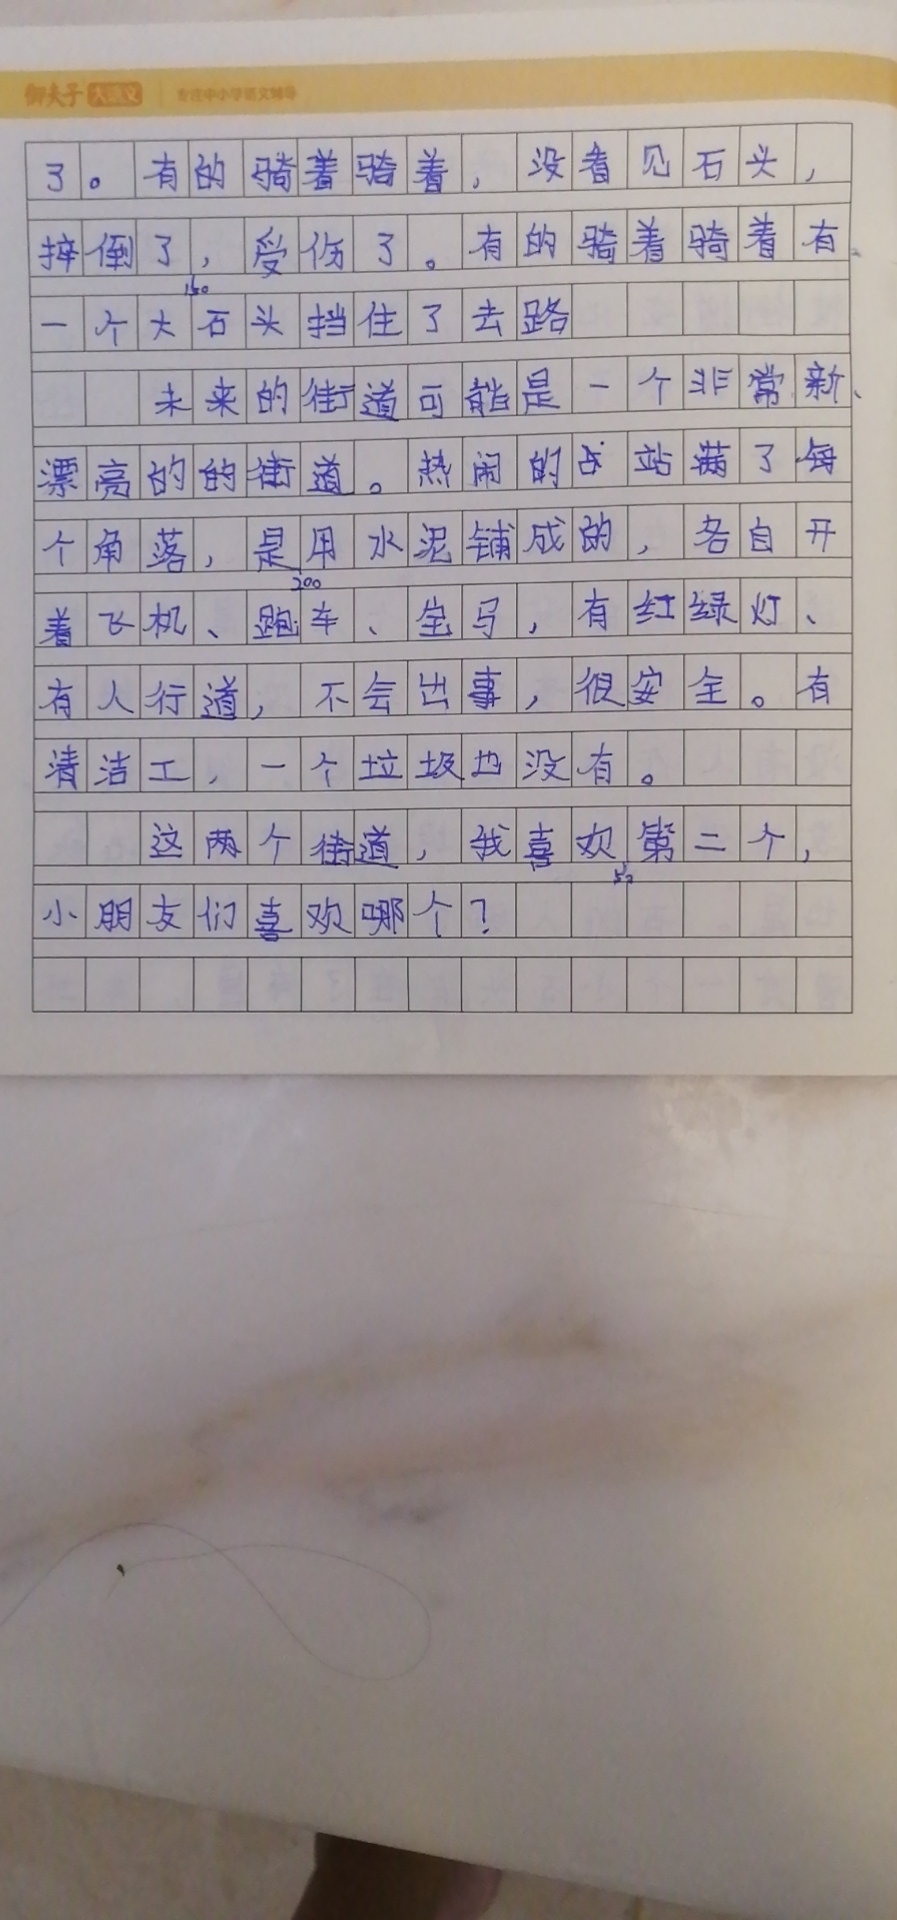 御夫子 大语文 专注中小学语文辅导
了。有的骑着骑着，没看见石头，
摔倒了，受伤了。有的骑着骑着有
150
一个大石头挡住了去路
未来的街道可能是一个非常新、
漂亮的的街道。热闹的占站满了每
个角落，是用水泥铺成的，各自开
200
着飞机、跑车、宝马，有红绿灯、
有人行道，不会出事，很安全。有
清洁工，一个垃圾也没有。
这两个街道，我喜欢第二个，
小朋友们喜欢哪个？